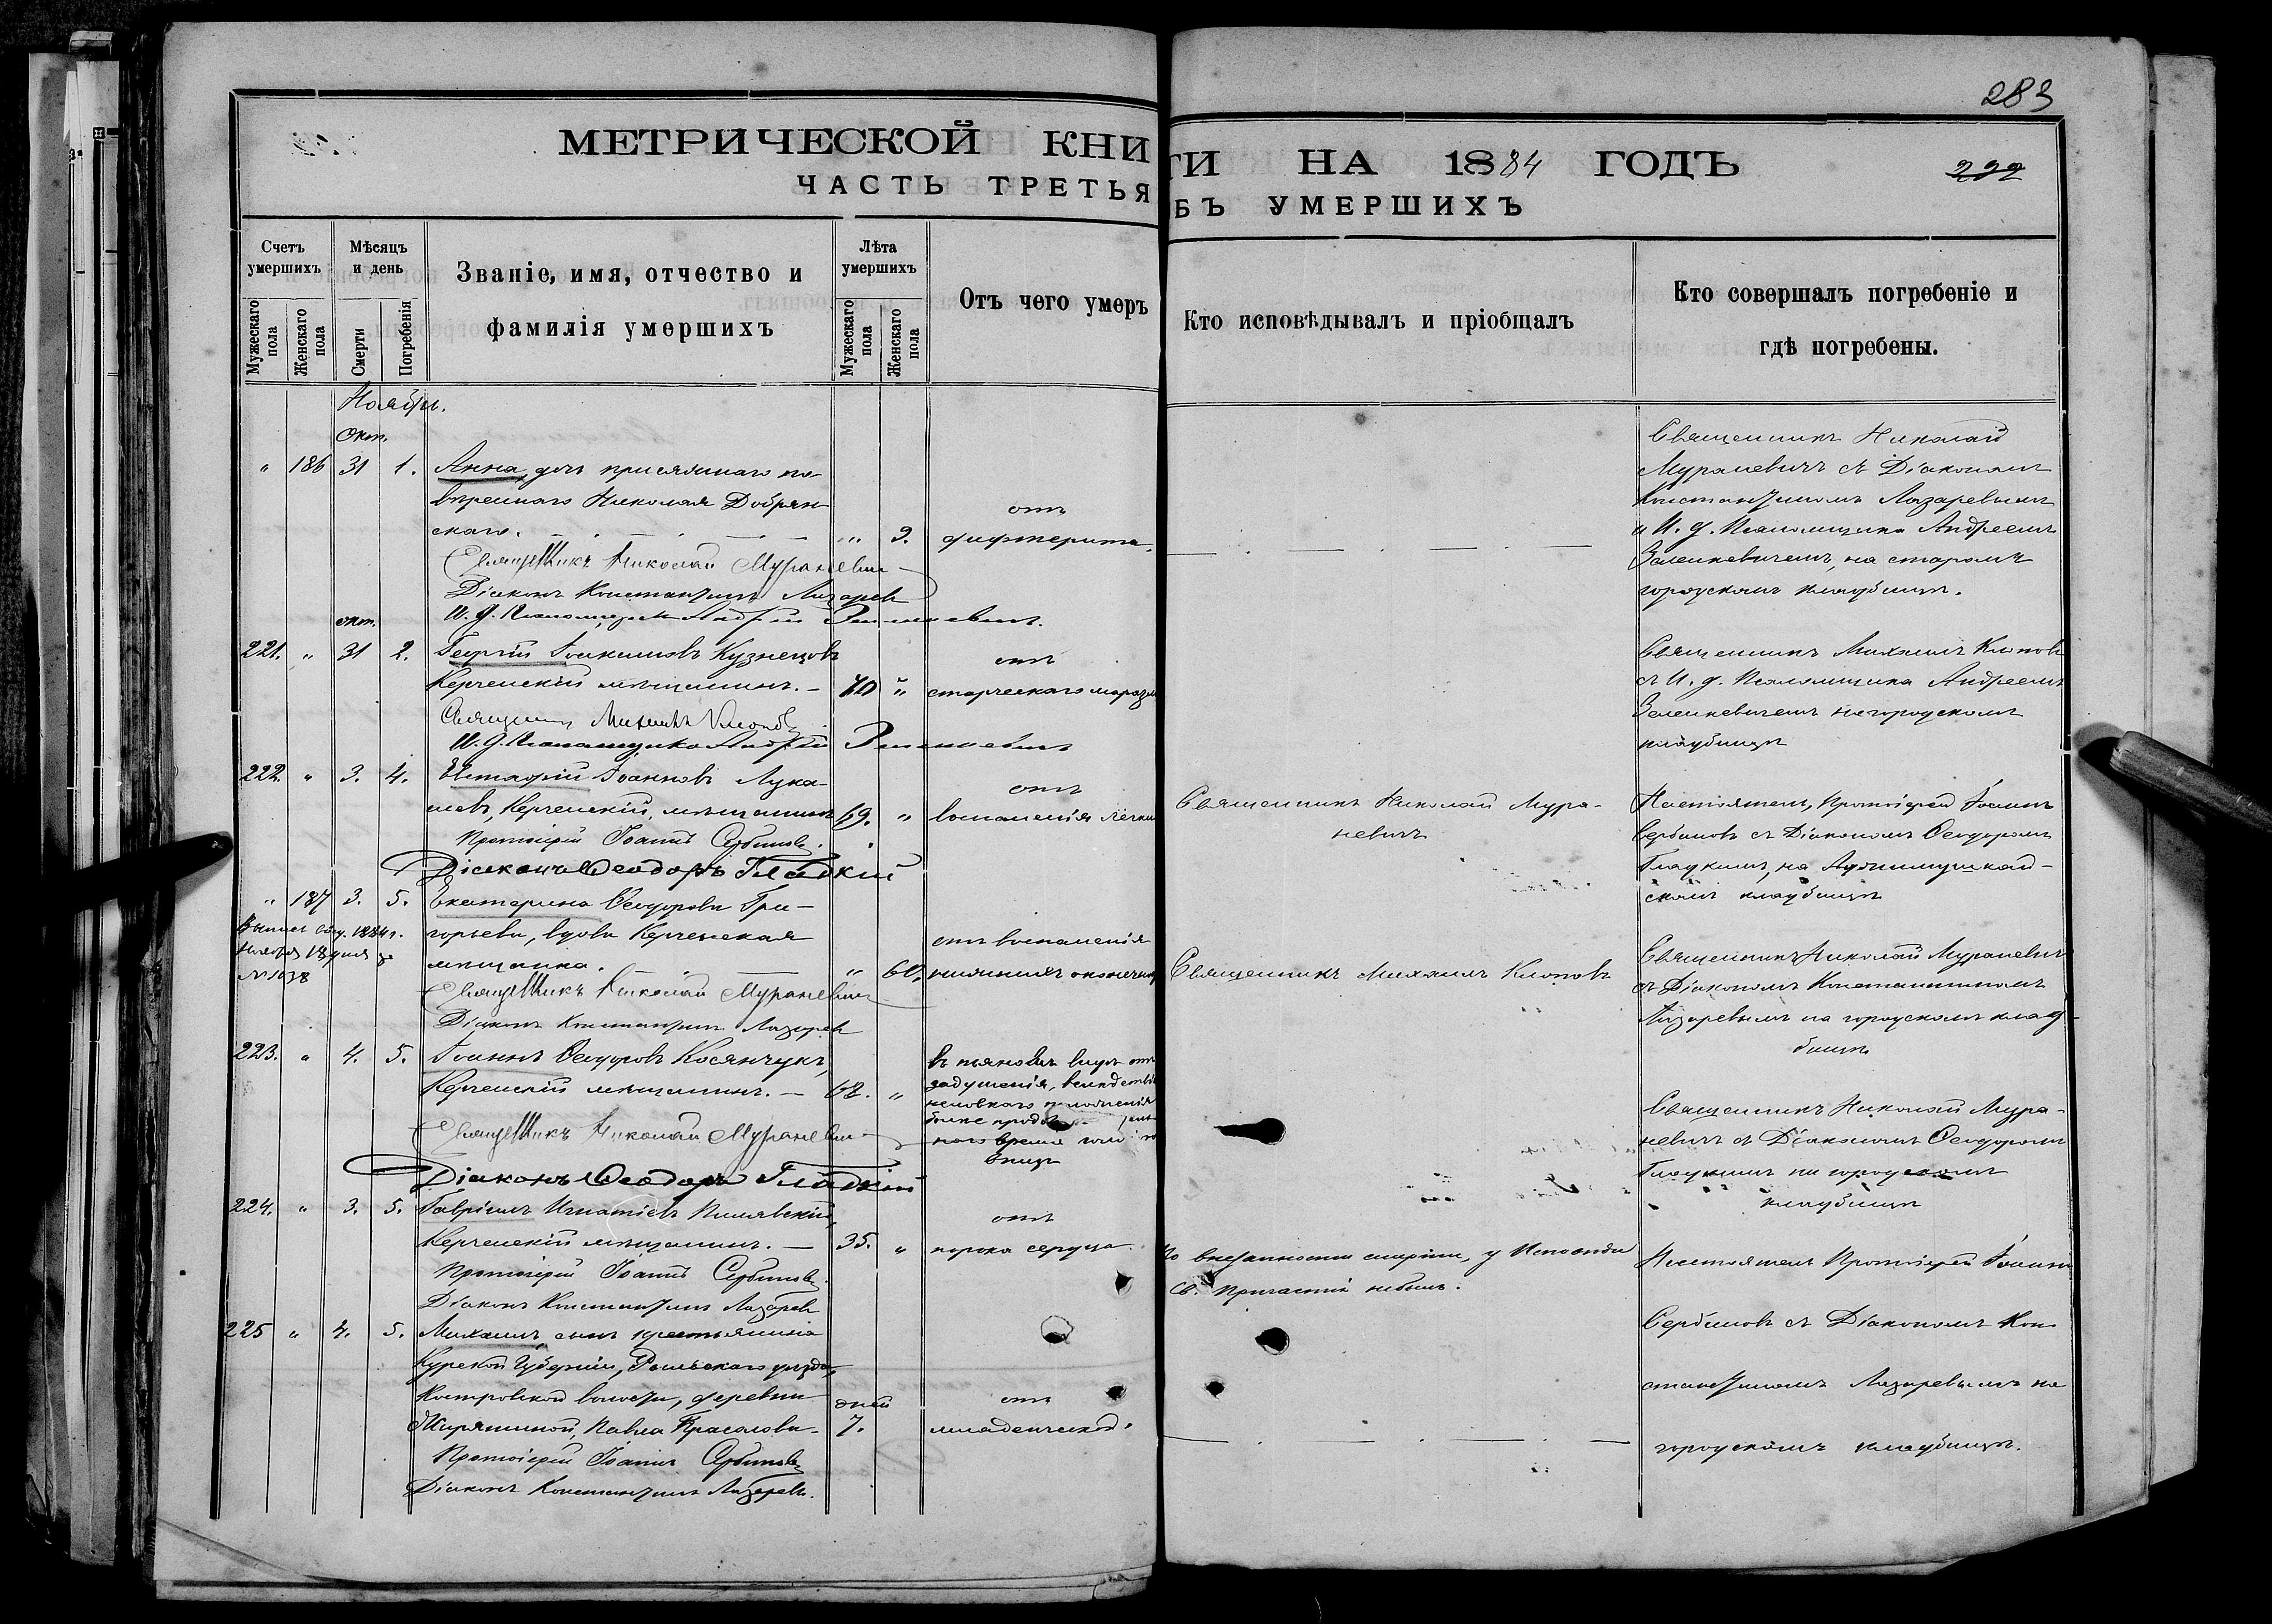 283
МЕТРИЧЕСКОЙ КНИ
ГИ НА 1884 ГОДЪ
ЧАСТЬ ТРЕТЬЯ
БЪ УМЕРШИХЪ
Счетъ умершихъ
Мужескаго пола
Женскаго пола
Мѣсяцъ и день
Смерти
Погребенія
Званіе, имя, отчество и
фамилія умершихъ
Лѣта умершихъ
Мужескаго пола
Женскаго пола
Отъ чего умеръ
Кто исповѣдывалъ и пріобщалъ
Кто совершалъ погребеніе и
гдѣ погребены.
Ноябрь.
Окт.
" 186 31 1. Анна, дочь присяжнаго по-
вѣреннаго Николая Добрян-
скаго. " 9.
отъ
дифтерита.
Священникъ Николай Мураневичъ
Діаконъ Константинъ Лазаревъ
И. д. Псаломщика Андрей Зеленкевичъ.
Священникъ Николай
Мураневичъ съ Діакономъ
Константиномъ Лазаревымъ
и И. д. Псаломщика Андреемъ
Зеленкевичемъ, на старомъ
городскомъ кладбищѣ.
окт.
221. " 31 2. Георгій Іоакимовъ Кузнецовъ
Керченскій мѣщанинъ. 70 "
отъ
старческаго маразм
Священникъ Михаилъ Клоповъ
И. д. Псаломщика Андрей Зеленкевичъ
Священникъ Михаилъ Клоповъ
съ И. д. Псаломщика Андреемъ
Зеленкевичемъ на городскомъ
кладбищѣ
222. " 3. 4. Евстафій Іоанновъ Лука-
шевъ, Керченскій мѣщанинъ 69. "
отъ
воспаленія легки
Протоіерей Іоаннъ Сербиновъ.
Діаконъ Ѳеодоръ Гладкій
Священникъ Николай Мура-
невичъ
Настоятель, Протоіерей Іоаннъ
Сербиновъ съ Діакономъ Ѳеодоромъ
Гладкимъ, на
скомъ кладбищѣ
" 187 3. 5. Екатерина Ѳеодорова Гри-
горьева, вдова Керченская
мѣщанка. " 60.
отъ воспаленія
Ноября 18 дня за
№ 1038
Священникъ Николай Мураневичъ
Діаконъ Константинъ Лазаревъ
Священникъ Михаилъ Клоповъ
Священникъ Николай Мураневичъ
съ Діакономъ Константиномъ
Лазаревымъ на городскомъ клад-
бищѣ
223. " 4. 5. Іоаннъ Ѳеодоровъ Косянчукъ,
Керченскій мѣщанинъ. 68. "
въ пьяномъ видѣ отъ
задушенія, вслѣдствіе
неловкаго положенія
внизъ
Священникъ Николай Мураневичъ
Діаконъ Ѳеодоръ Гладкій
Священникъ Николай Мура-
невичъ съ Діакономъ Ѳеодоромъ
Гладкимъ на городскомъ
кладбищѣ
224. " 3. 5. Гавріилъ Игнатіевъ Пилявскій,
Керченскій мѣщанинъ. 35. "
отъ
порока сердца.
Протоіерей Іоаннъ Сербиновъ.
Діаконъ Константинъ Лазаревъ
По внезапности смерти, у Исповѣди
Св. Причастія небылъ.
225 " 4. 5. Михаилъ сынъ крестьянина
Курской Губерніи, Рыльскаго уѣзда,
Костровской волости, деревни
Жиряшиной, Павла Брасалова.
дней
7.
отъ
младенческой.
Протоіерей Іоаннъ Сербиновъ
Діаконъ Константинъ Лазаревъ.
Настоятель Протоіерей Іоаннъ
Сербиновъ съ Діакономъ Кон-
стантиномъ Лазаревымъ на
городскомъ кладбищѣ.